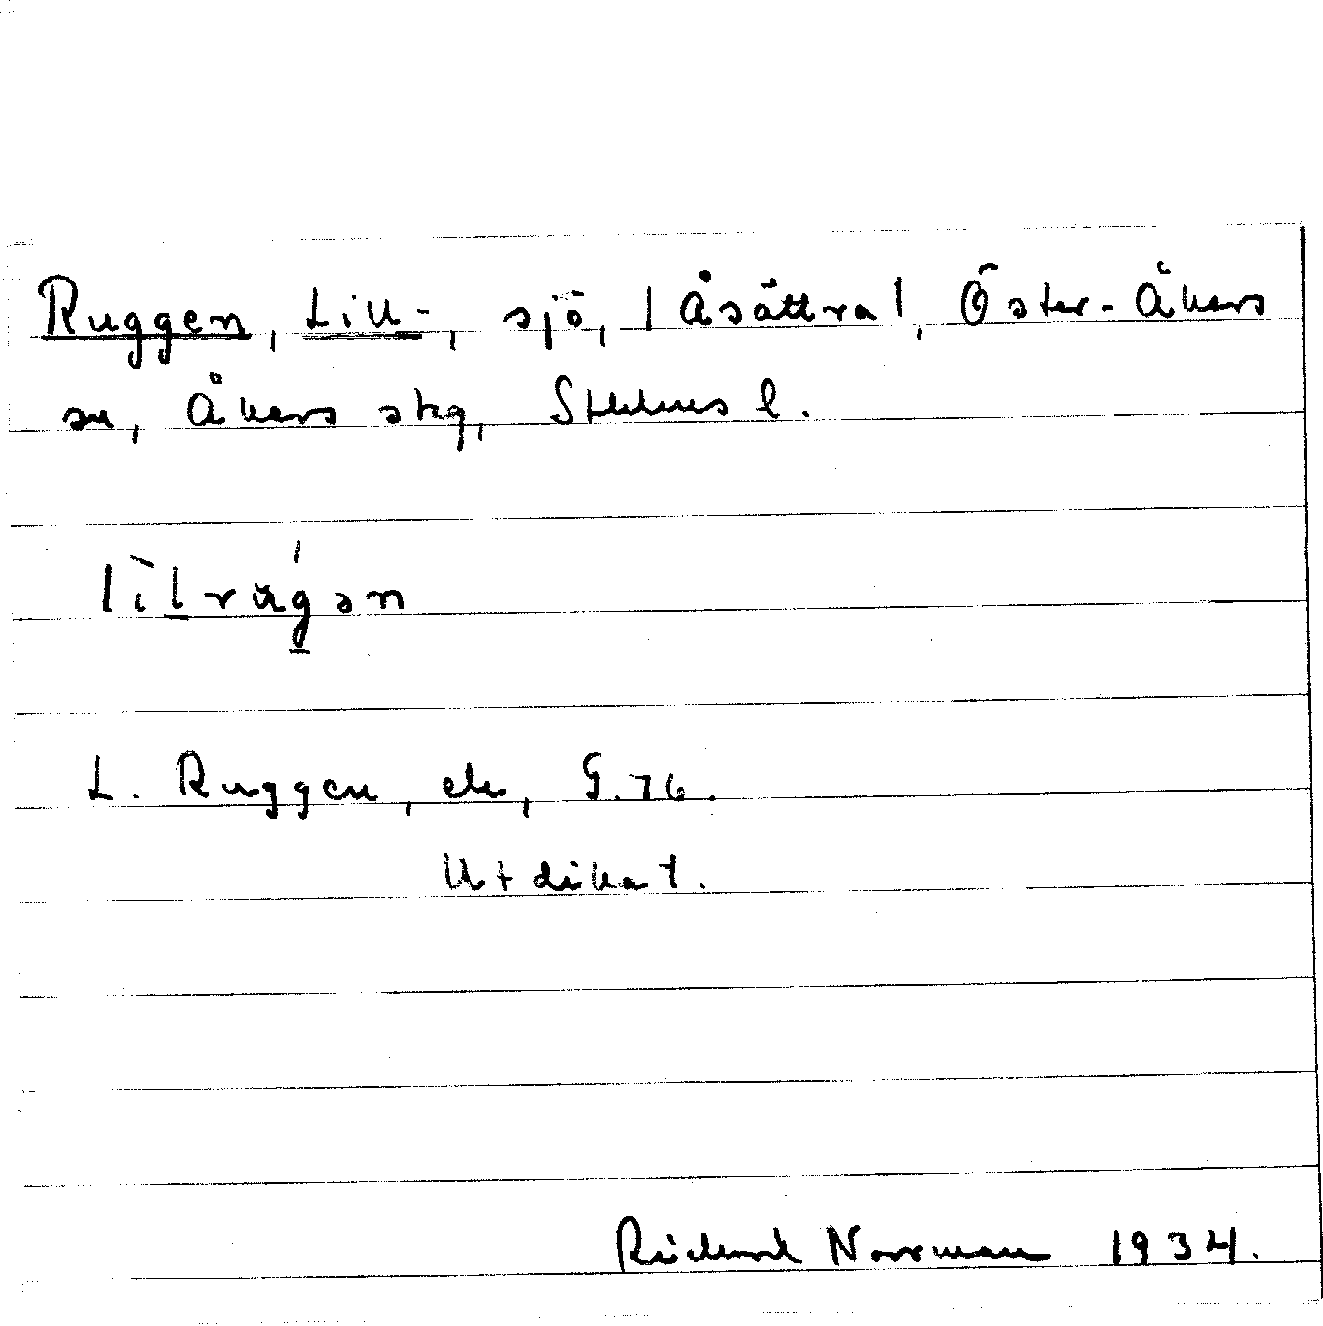 Ruggen, Lill-, sjö, | Åsättra |, Öster-Åkers
sn, Åkers skg, Sthlms l.
lìlrúgən
L. Ruggen, ek, G.76.
Utdikat.
Richard Norrman 1934.